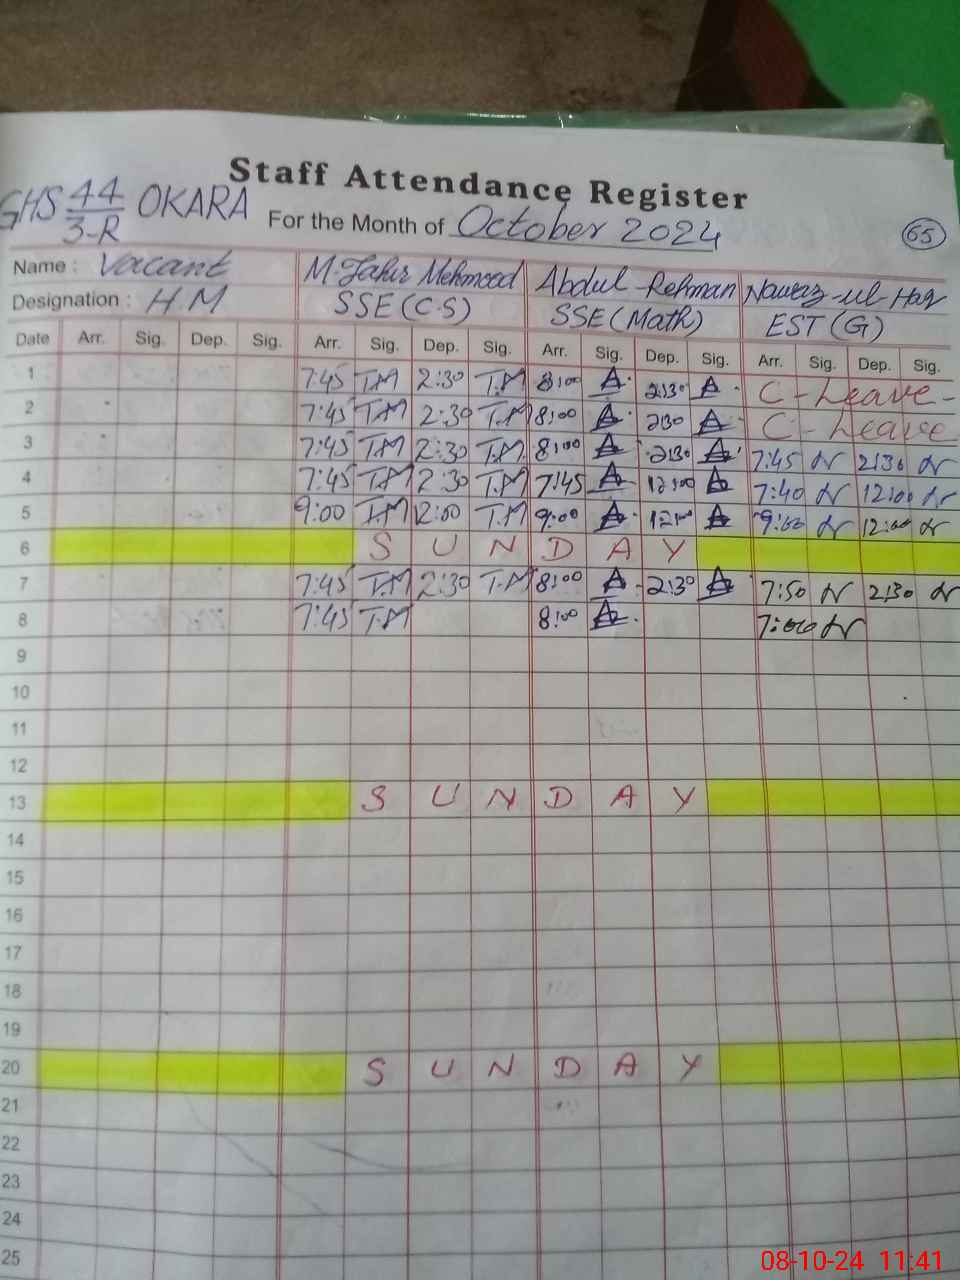 Staff Attendance Register
GHS 44/3-R OKARA
For the Month of October 2024
65
Name : Vacant M. Tahir Mehmood Abdul-Rehman Nawaz-ul-Haq
Designation : H.M SSE (C.S) SSE (Math) EST (G)
Date Arr. Sig. Dep. Sig. Arr. Sig. Dep. Sig. Arr. Sig. Dep. Sig. Arr. Sig. Dep. Sig.
1 7:45 T.M 2:30 T.M 8:00 2:30 C-Leave-
2 7:45 T.M 2:30 T.M 8:00 2:30 C-Leave
3 7:45 T.M 2:30 T.M 8:00 2:30 7:45 2:30
4 7:45 T.M 2:30 T.M 7:45 12:00 7:40 12:00
5 9:00 T.M 12:00 T.M 9:00 12:00 9:00 12:00
6 S U N D A Y
7 7:45 T.M 2:30 T.M 8:00 2:30 7:50 2:30
8 7:45 T.M 8:00
9
10
11
12
13 S U N D A Y
14
15
16
17
18
19
20 S U N D A Y
21
22
23
24
25
08-10-24 11:41